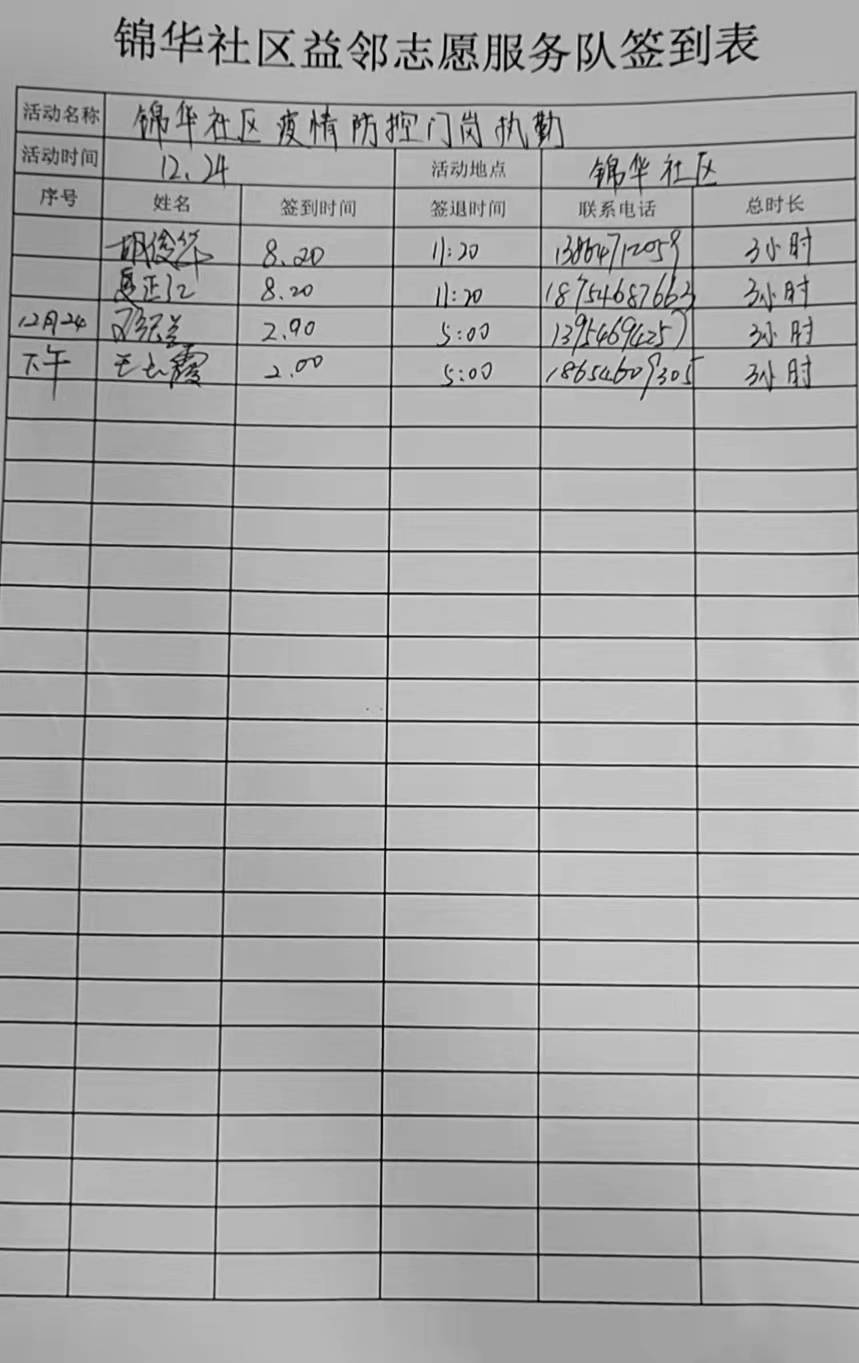 锦华社区益邻志愿服务队签到表
活动名称 锦华社区疫情防控门岗执勤
活动时间 12.24 活动地点 锦华社区
序号 姓名 签到时间 签退时间 联系电话 总时长
胡俊华 8.20 11:20 13864712059 3小时
正江 8.20 11:20 18754687663 3小时
12月24 2.00 5:00 13954694257 3小时
下午 王 霞 2.00 5:00 18654609305 3小时